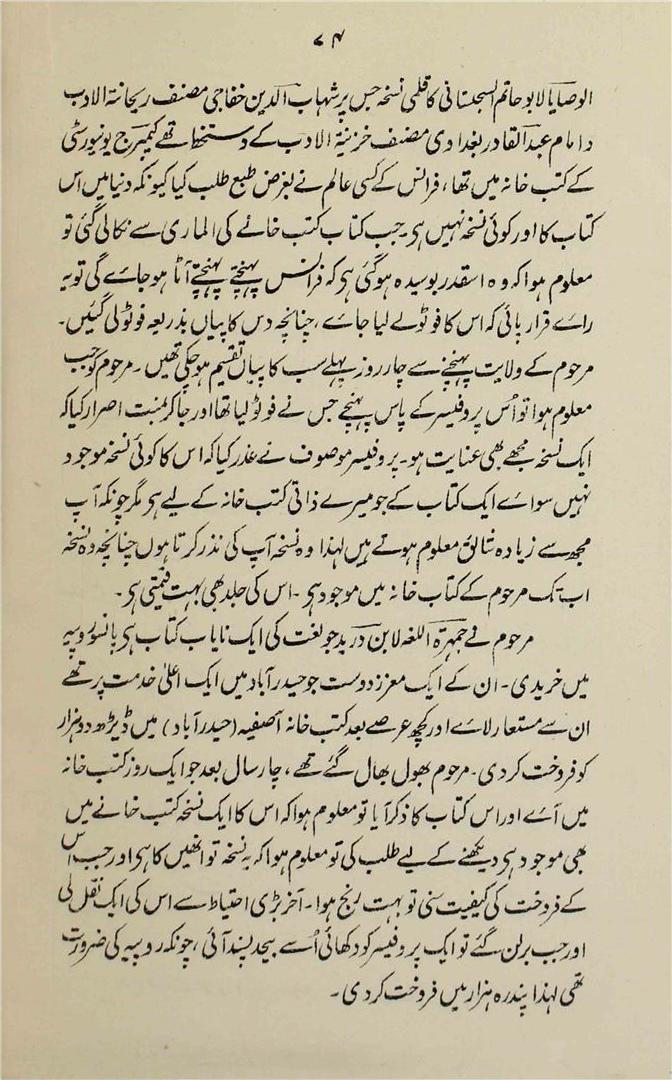 ۷۴
الوصایا لابو حاتم السجستانی کا قلمی نسخہ جس پر شہاب الدین خفاجی مصنف ریحانۃ الادب
و امام عبدالقادر بغدادی مصنف خزنیۃ الادب کے دستخط تھے کیمبرج یونیورسٹی
کے کتب خانہ میں تھا، فرانس کے کسی عالم نے بغرض طبع طلب کیا کیونکہ دنیا میں اس
کتاب کا اور کوئی نسخہ نہیں ہی۔ جب کتاب کتب خانے کی الماری سے نکالی گئی تو
معلوم ہوا کہ وہ اسقدر بوسیدہ ہوگئی ہی کہ فرانس پہنچتے پہنچتے آٹا ہوجائے گی تو یہ
رائے قرار پائی کہ اس کا فوٹو لے لیا جائے، چنانچہ دس کاپیاں بذریعہ فوٹو لی گئیں۔
مرحوم کے ولایت پہنچنے سے چار روز پہلے سب کاپیاں تقسیم ہوچکی تھیں۔ مرحوم کو جب
معلوم ہوا تو اُس پروفیسر کے پاس پہنچے جس نے فوٹو لیا تھا اور جاکر مِنّت اصرار کیا کہ
ایک نسخہ مجھے بھی عنایت ہو۔ پروفیسر موصوف نے عذر کیا کہ اس کا کوئی نسخہ موجود
نہیں سوائے ایک کتاب کے جو میرے ذاتی کتب خانہ کے لیے ہی مگر چونکہ آپ
مجھ سے زیادہ شائق معلوم ہوتے ہیں لہذا وہ نسخہ آپ کی نذر کرتا ہوں چنانچہ وہ نسخہ
اب تک مرحوم کے کتاب خانہ میں موجود ہی۔ اس کی جلد بھی بہت قیمتی ہی۔
مرحوم نے جمہرۃ اللغہ لابن درید جو لغت کی ایک نایاب کتاب ہی پانسو روپیہ
میں خریدی۔ ان کے ایک معزز دوست جو حیدرآباد میں ایک اعلیٰ خدمت پر تھے
ان سے مستعار لائے اور کچھ عرصے بعد کتب خانہ آصفیہ (حیدرآباد) میں ڈیڑھ دو ہزار
کو فروخت کردی۔ مرحوم بھول بھال گئے تھے، چار سال بعد جو ایک روز کتب خانہ
میں آئے اور اس کتاب کا ذکر آیا تو معلوم ہوا کہ اس کا ایک نسخہ کتب خانے میں
بھی موجود ہی دیکھنے کے لیے طلب کی تو معلوم ہوا کہ یہ نسخہ تو انھیں کا ہی اور جب اس
کے فروخت کی کیفیت سنی تو بہت رنج ہوا۔ آخر بڑی احتیاط سے اس کی ایک نقل لی
اور جب برلن گئے تو ایک پروفیسر کو دکھائی اُسے بیحد پسند آئی، چونکہ روپیہ کی ضرورت
تھی لہذا پندرہ ہزار میں فروخت کردی۔